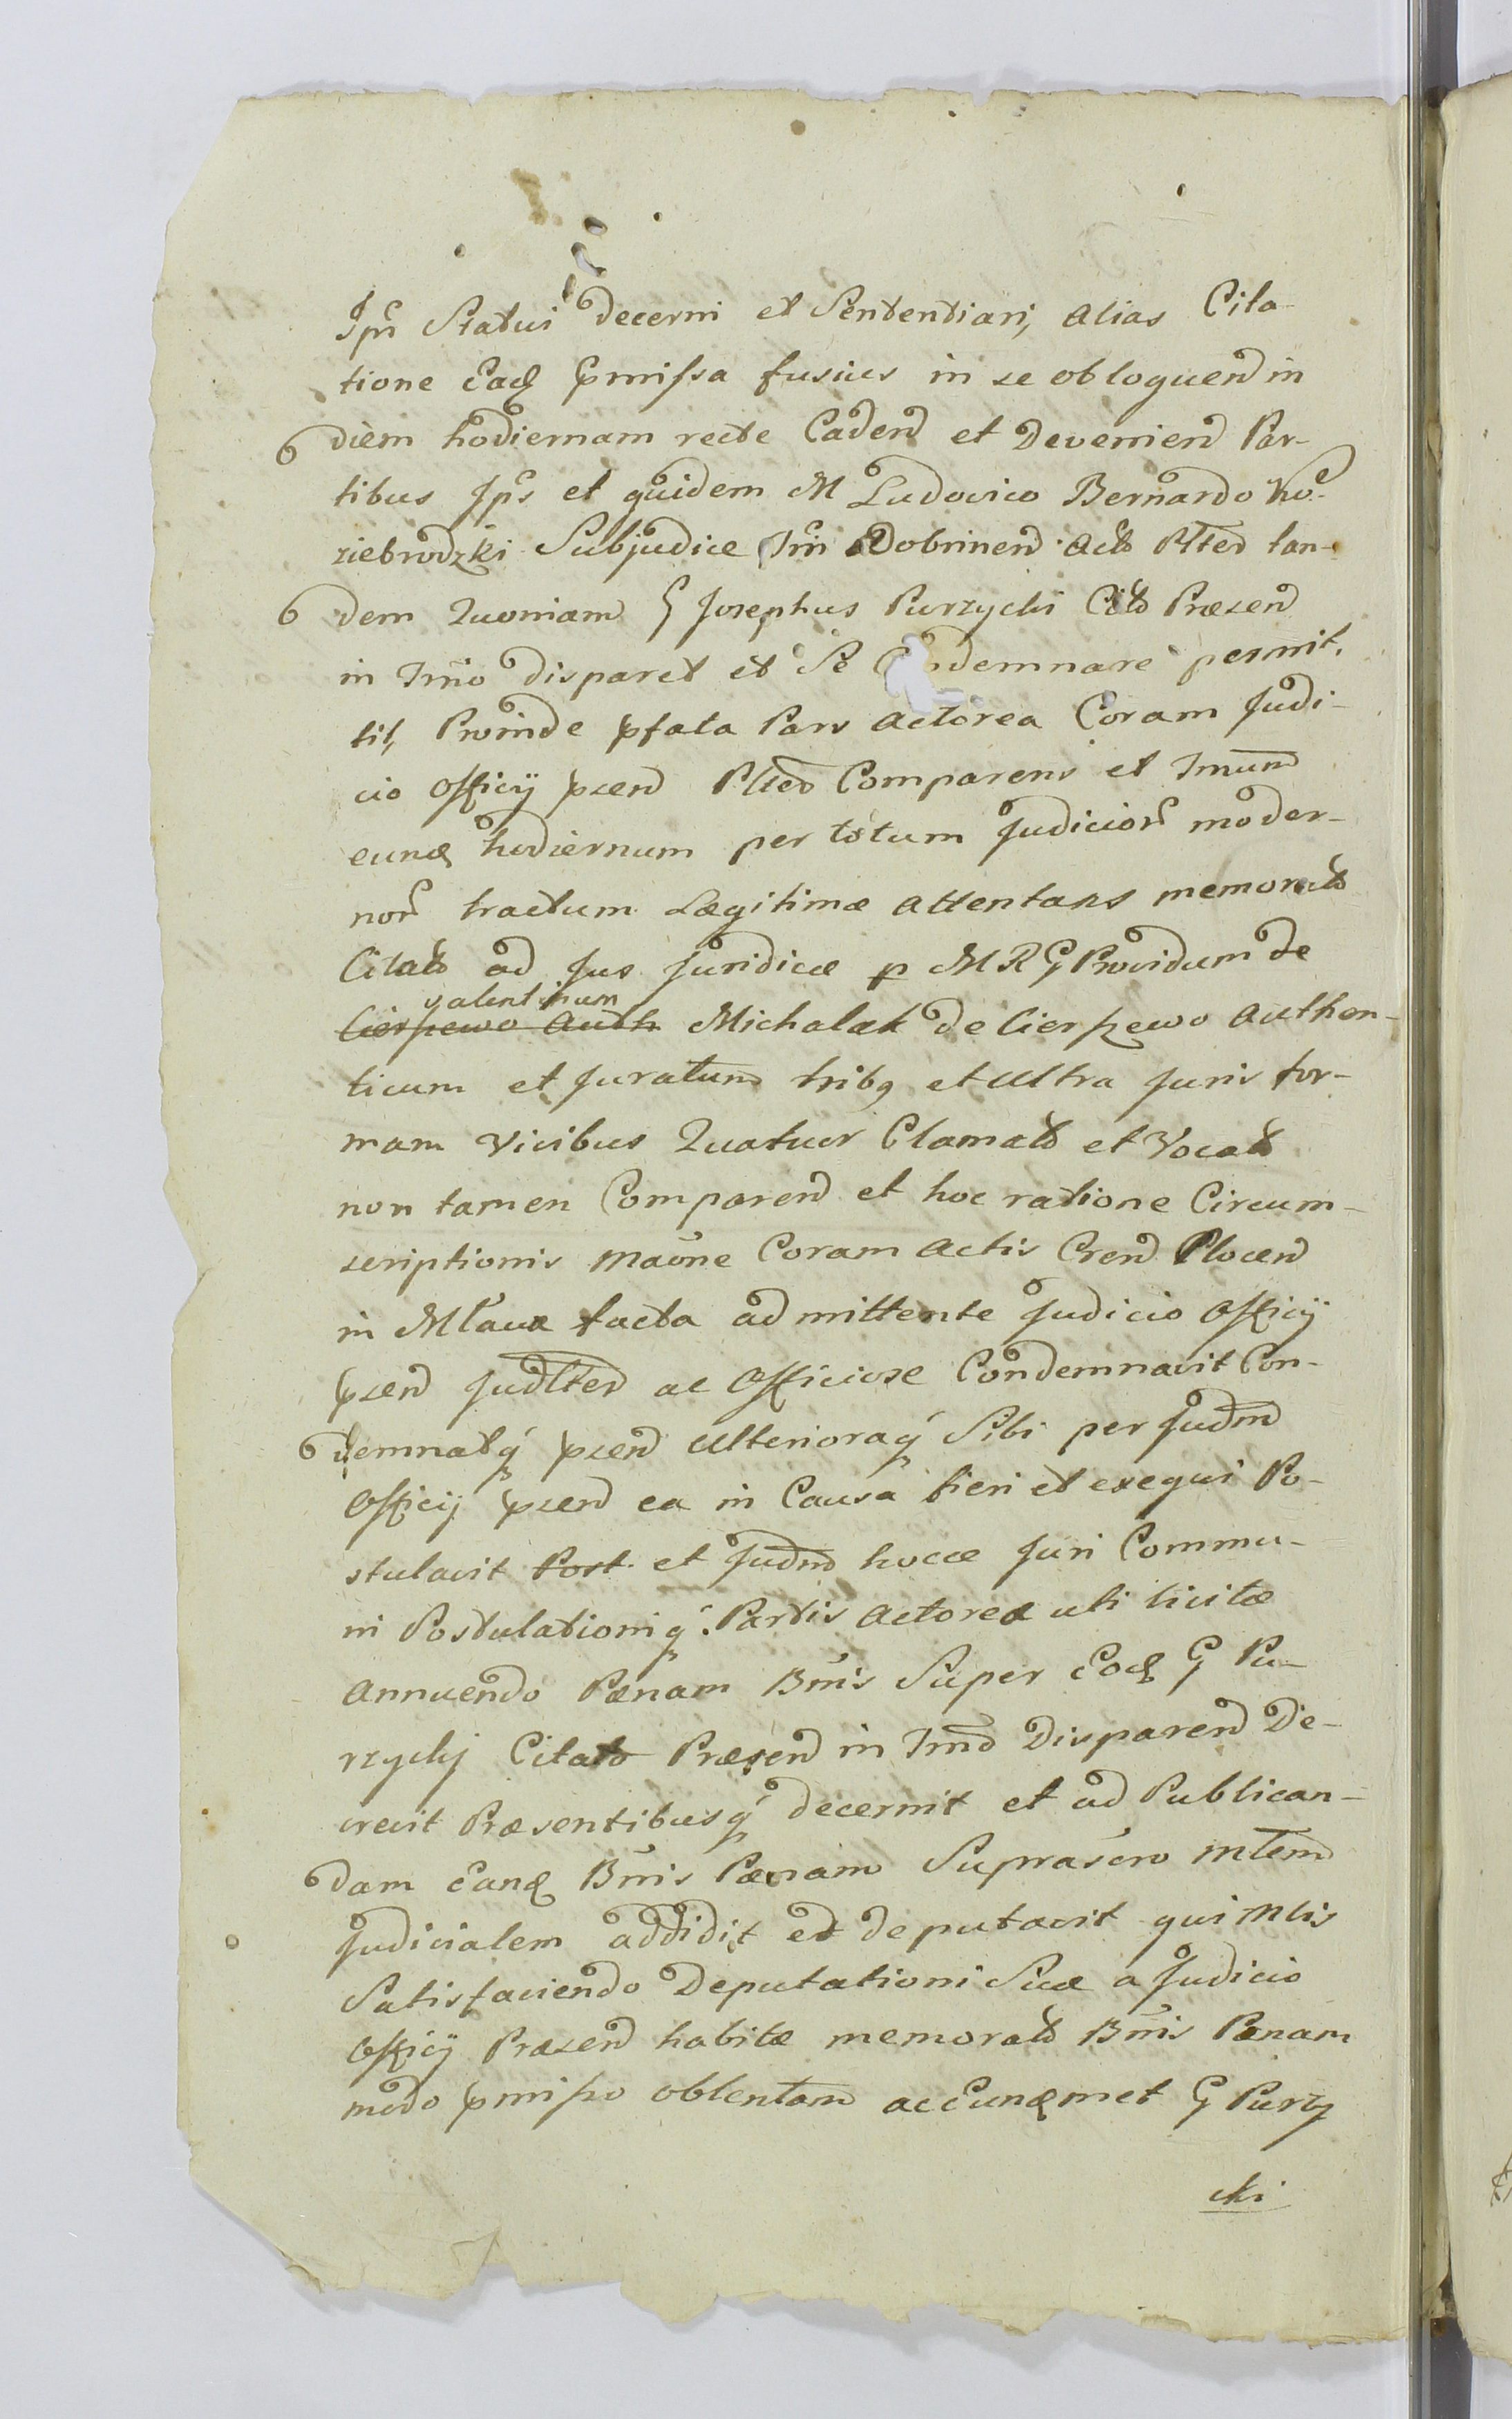 Ipsi Statui decerni et Sententiari, alias Cita-
tione Eadq pmissa fusius in se obloquend in
diem hodiernam recte Cadend et Deveniend Par-
tibus Ips et quidem M Ludovico Bernardo Ko-
ziebrodzki Subjudice Trri Dobrinend Act Pltter tan-
dem Quoniam G Josephus Purzycki Citt Præsend
in Trno disparet et Se demnare permit-
tit, Proinde pfata Pars actorea Coram Judi-
cio Officij psend Pltter Comparens et Trnum
eundq hodiernum per totum Judicior moder-
nor tractum Lægitimæ attentans memorat
Citat ad Jus Juridicæ p MRG Providum de
valentinum
Cierpewo Auth Michalak de Cierpzewo Authen-
ticum et Juratum tribq et ultra Juris for-
mam vicibus Quatuor Clamat et Vocat
non tamen Comparend et hoc ratione Circum-
scriptionis maone Coram Actis Crend Plocend
in Mlava facta admittente Judicio Officij
psend Judltter ac Officiose Condemnavit Con-
demnatq psend ulterioraq Sibi per Judm
Officij psend ea in Causa fieri et exequi Po-
stulavit Post. et Judm hocce Juri Commu-
ni Postulationiq Partis Actoreæ uti licitæ
Annuendo Pænam Bnis Super Eodq G Pu-
rzycki Citato Præsend in Trno Disparend De-
crevit Præsentibusq decernit et ad Publican-
dam Eandq Bnis Pænam Suprascro Mlem
Judicialem addidit et deputavit qui Mlis
Satisfaciendo Deputationi Suæ a Judicio
Officij Præsend habitæ memorat Bnis Pænam
modo pmisso obtentam ac Eundqmet G Purzy
cki